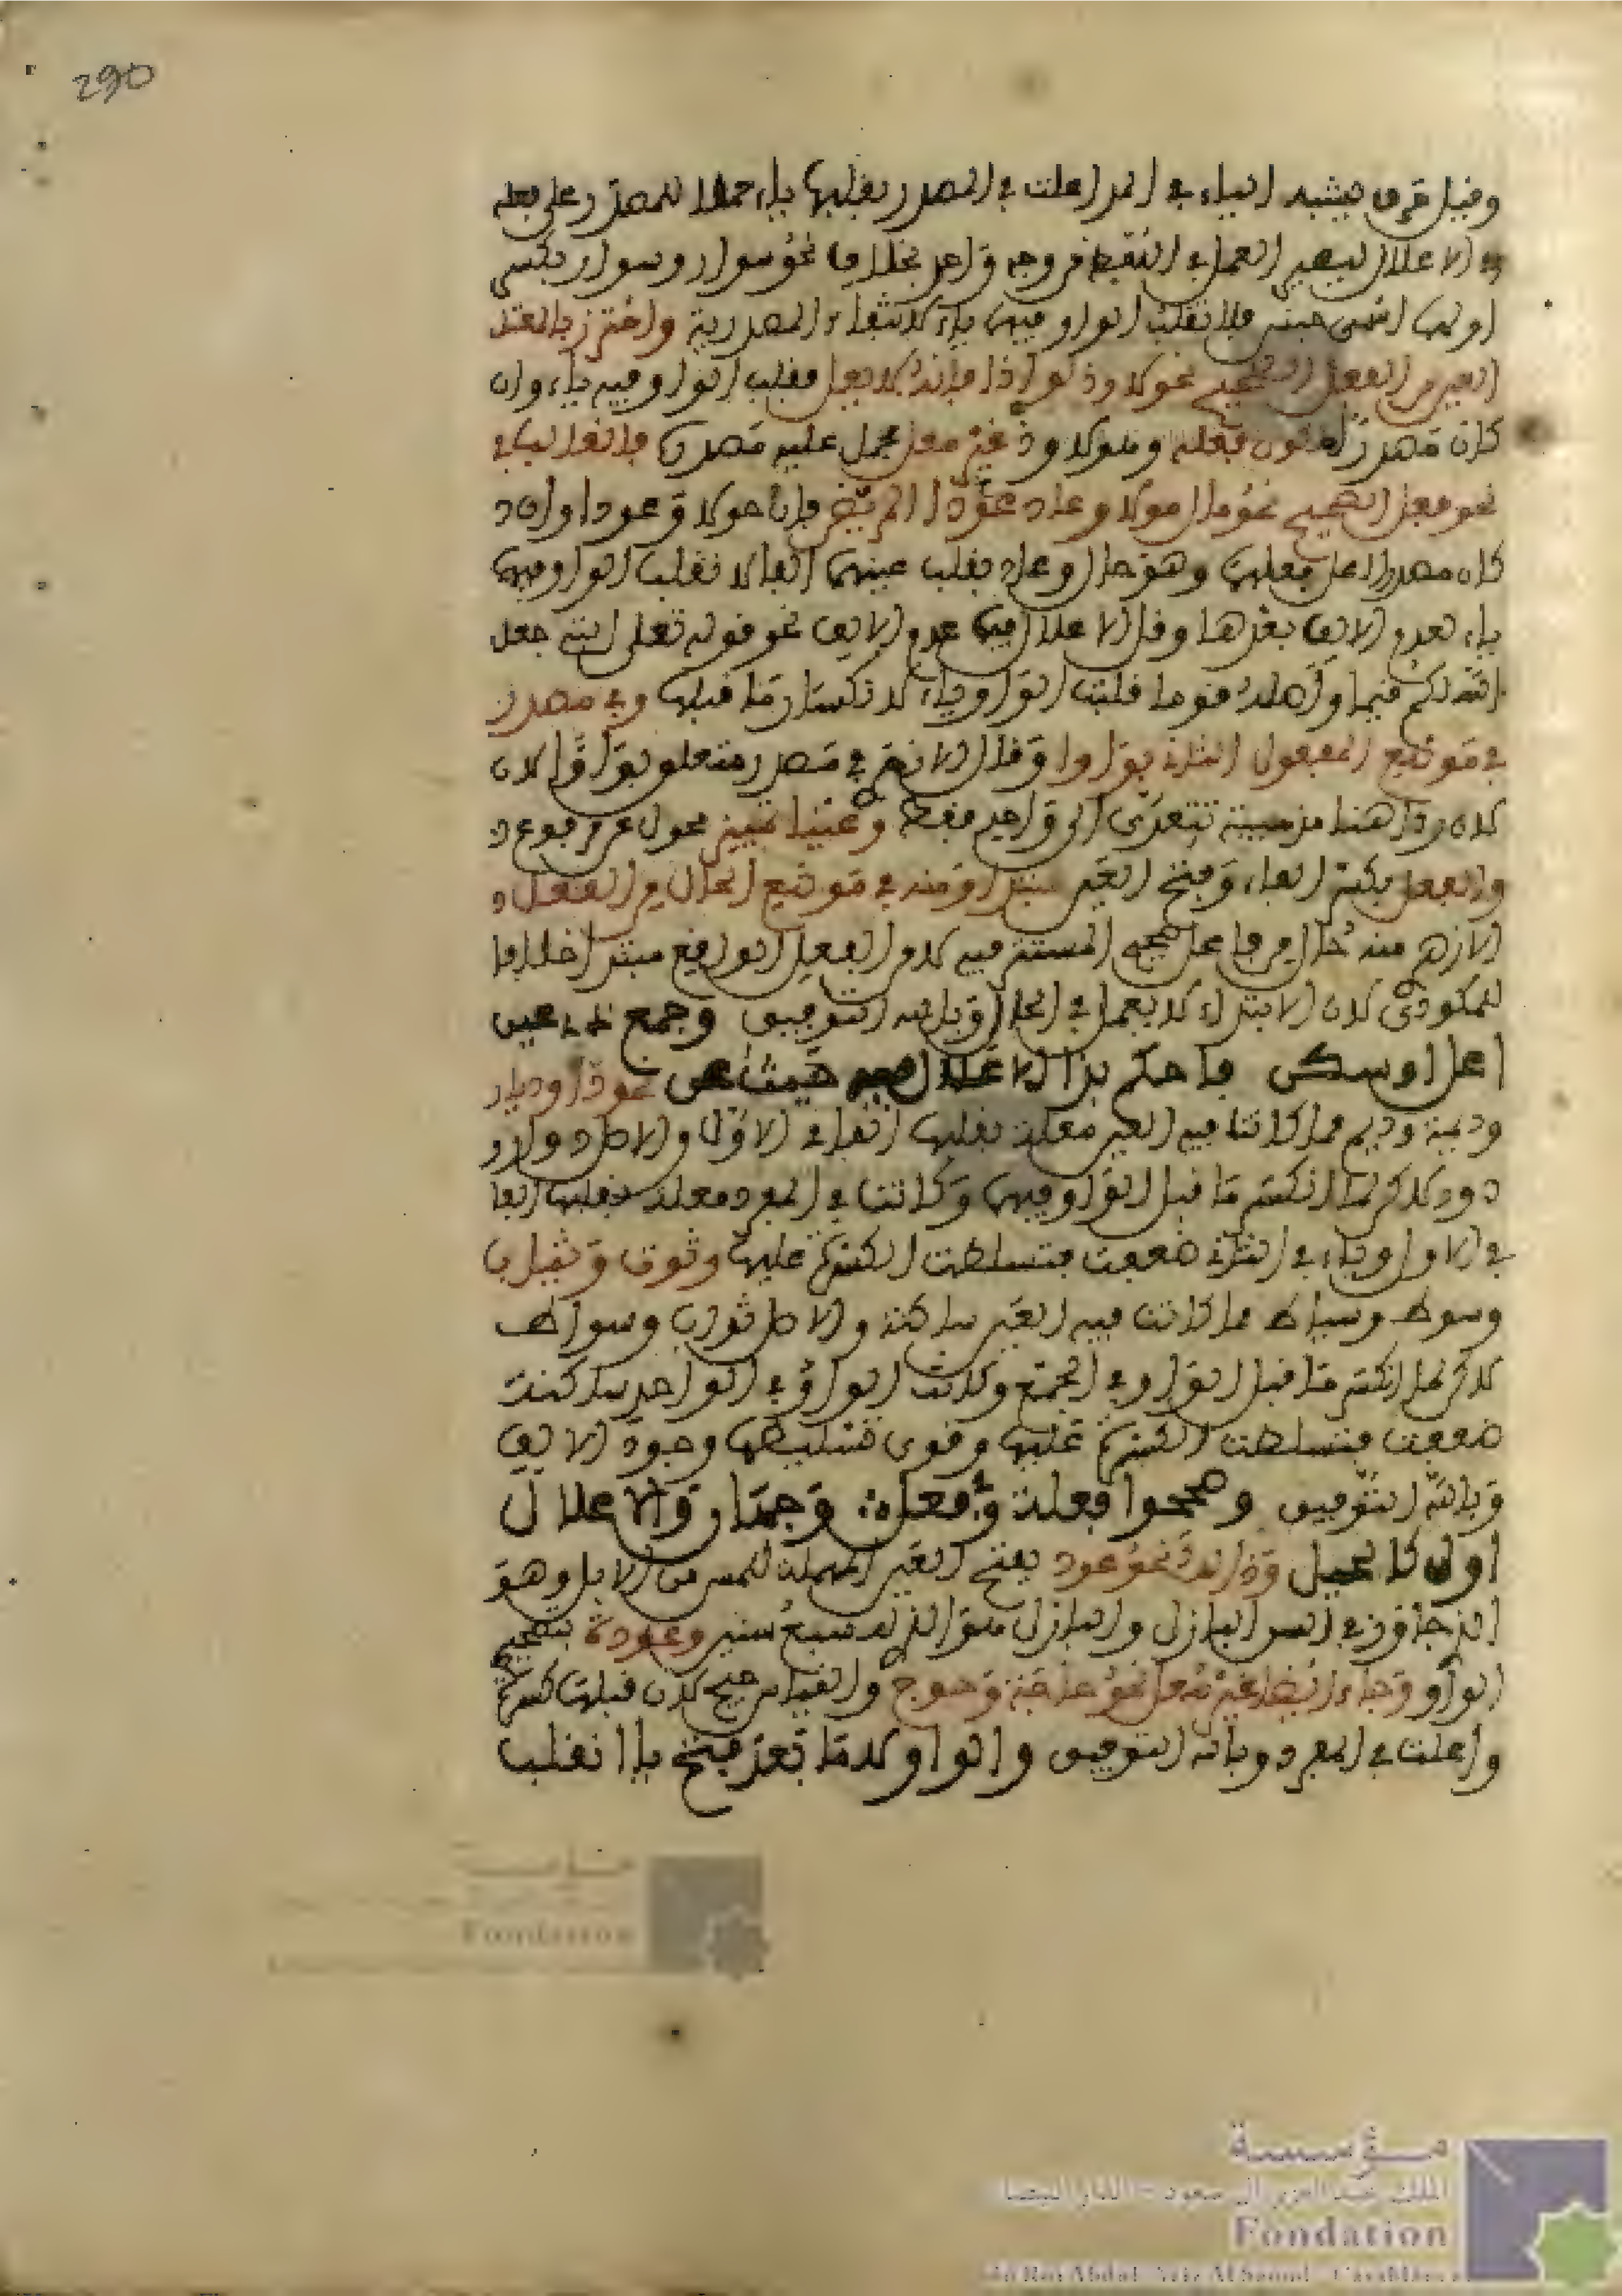 290
وقبل حرف يشبه الياء في المد اعلت في المصدر بقلبها ياء حملا للمصدر على فعله
في الاعلال ليصير العمل في اللفظ من وجه واحد بخلاف نحو سوار وسواك بكسر
اولهما اسمين فلا تقلب الواو فيهما ياء لانتفاء المصدرية واحترز بالمعتل
العين من الفعل الصحيح نحو لاوذ لواذا فانه لا تقلب الواو فيه ياء وان
كان مصدرا فعله ولاوذ غير معل حمل عليه مصدره
نحو فعل الصحيح نحو حال حولا وعاد عودا فان حولا وعودا وان
كان مصدرا اعل فعلهما وهو حال وعاد بقلب عينهما الفا لا تقلب الواو فيهما
ياء لعدم الالف بعدها وقل الاعلال فيما عدم الالف نحو قوله تعلى التي جعل
الله لكم قيما واصله قوما قلبت الواو ياء لانكسار ما قبلها وفي مصدر
في موضع المفعول الثان بروا وقال الازهري في مصدر متعلق برأوا لان
لان رأى هنا تتعدى الى واحد فقط وعينا تمييز محول عن مرفوع
والفعل بكسر الفاء وفتح العين مبتدا ومنه في موضع الحال من الفعل
الازهري منه حال من فاعل صحيح المستتر فيه لا من الفعل الواقع مبتدا خلافا
للمكودي لان الابتداء لا يعمل في الحال وبالله التوفيق وجمع ذي عين
اعل او سكن فاحكم بذا الاعلال فيه حيث عن نحو دار وديار
وديمة وديم مما كانت فيه العين معلة بقلبها الفا في الاول والاصل دوار و
دوم لاكن لما انكسر ما قبل الواو فيهما وكانت في المفرد معلة بقلبها الفا
في الاول وياء في الثان ضعفت فتسلطت الكسرة عليها وثوب وثياب
وسوط وسياط مما كانت فيه العين ساكنة والاصل ثواب وسواط
لاكن لما انكسر ما قبل الواو في الجمع وكانت الواو في الواحد ساكنة
ضعفت فتسلطت الكسرة عليها وقوى تسليطها وجود الالف
وبالله التوفيق وصححوا فعلة وفي فعل وجهان والاعلال
اولى كالحيل وذلك نحو عود بفتح العين المهملة للمسن من الابل وهو
الذي جاوز في السن البازل والبازل هو الذي له سبع سنين وعودة بتصحيح
الواو وجاء ايضا غير معل نحو حاجة وحوج والقياس حيج لان قبلها كسرة
واعلت في المفرد وبالله التوفيق والواو لاما بعد فتح يا انقلب
مؤسسة
Fondation
مؤسسة
الملك عبد العزيز آل سعود - الدار البيضاء
Fondation
du Roi Abdul Aziz Al Saoud - Casablanca